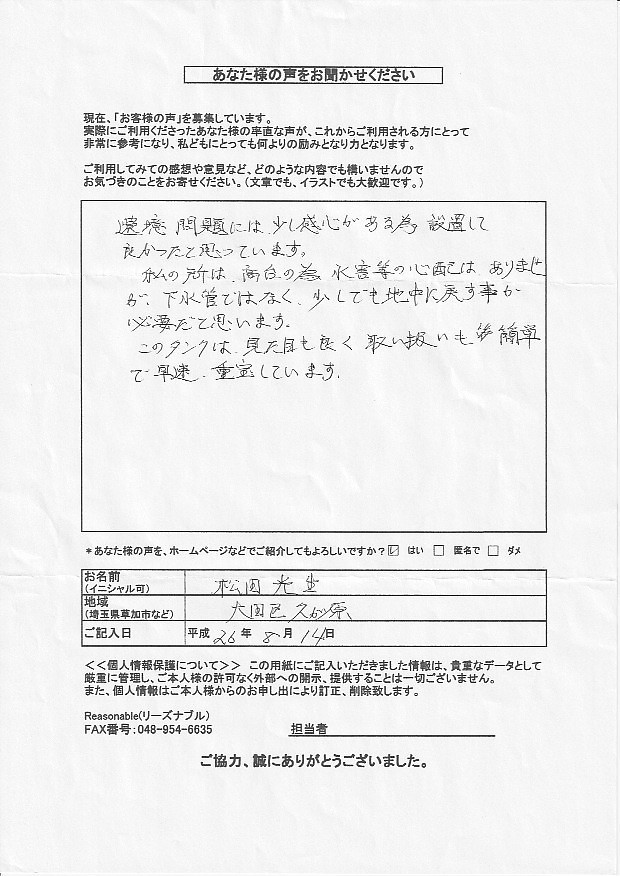 あなた様の声をお聞かせください
現在、「お客様の声」を募集しています。
実際にご利用くださったあなた様の率直な声が、これからご利用される方にとって
非常に参考になり、私どもにとっても何よりの励みとなり力となります。
ご利用してみての感想や意見など、どのような内容でも構いませんので
お気づきのことをお寄せください。(文章でも、イラストでも大歓迎です。)
環境問題には、少し感心がある為、設置して
良かったと思っています。
私の所は、高台の為、水害等の心配は、ありませ
が、下水管ではなく、少しでも地中に戻す事が
必要だと思います。
このタンクは、見た目も良く取い扱いも、簡単
で早速、重宝しています。
*あなた様の声を、ホームページなどでご紹介してもよろしいですか? ☑ はい □ 匿名で □ ダメ
お名前
(イニシャル可) 松田 光
地域
(埼玉県草加市など) 大田区久が原
ご記入日 平成 26 年 8 月 14 日
<<個人情報保護について>> この用紙にご記入いただきました情報は、貴重なデータとして
厳重に管理し、ご本人様の許可なく外部への開示、提供することは一切ございません。
また、個人情報はご本人様からのお申し出により訂正、削除致します。
Reasonable(リーズナブル)
FAX番号:048-954-6635 担当者
ご協力、誠にありがとうございました。